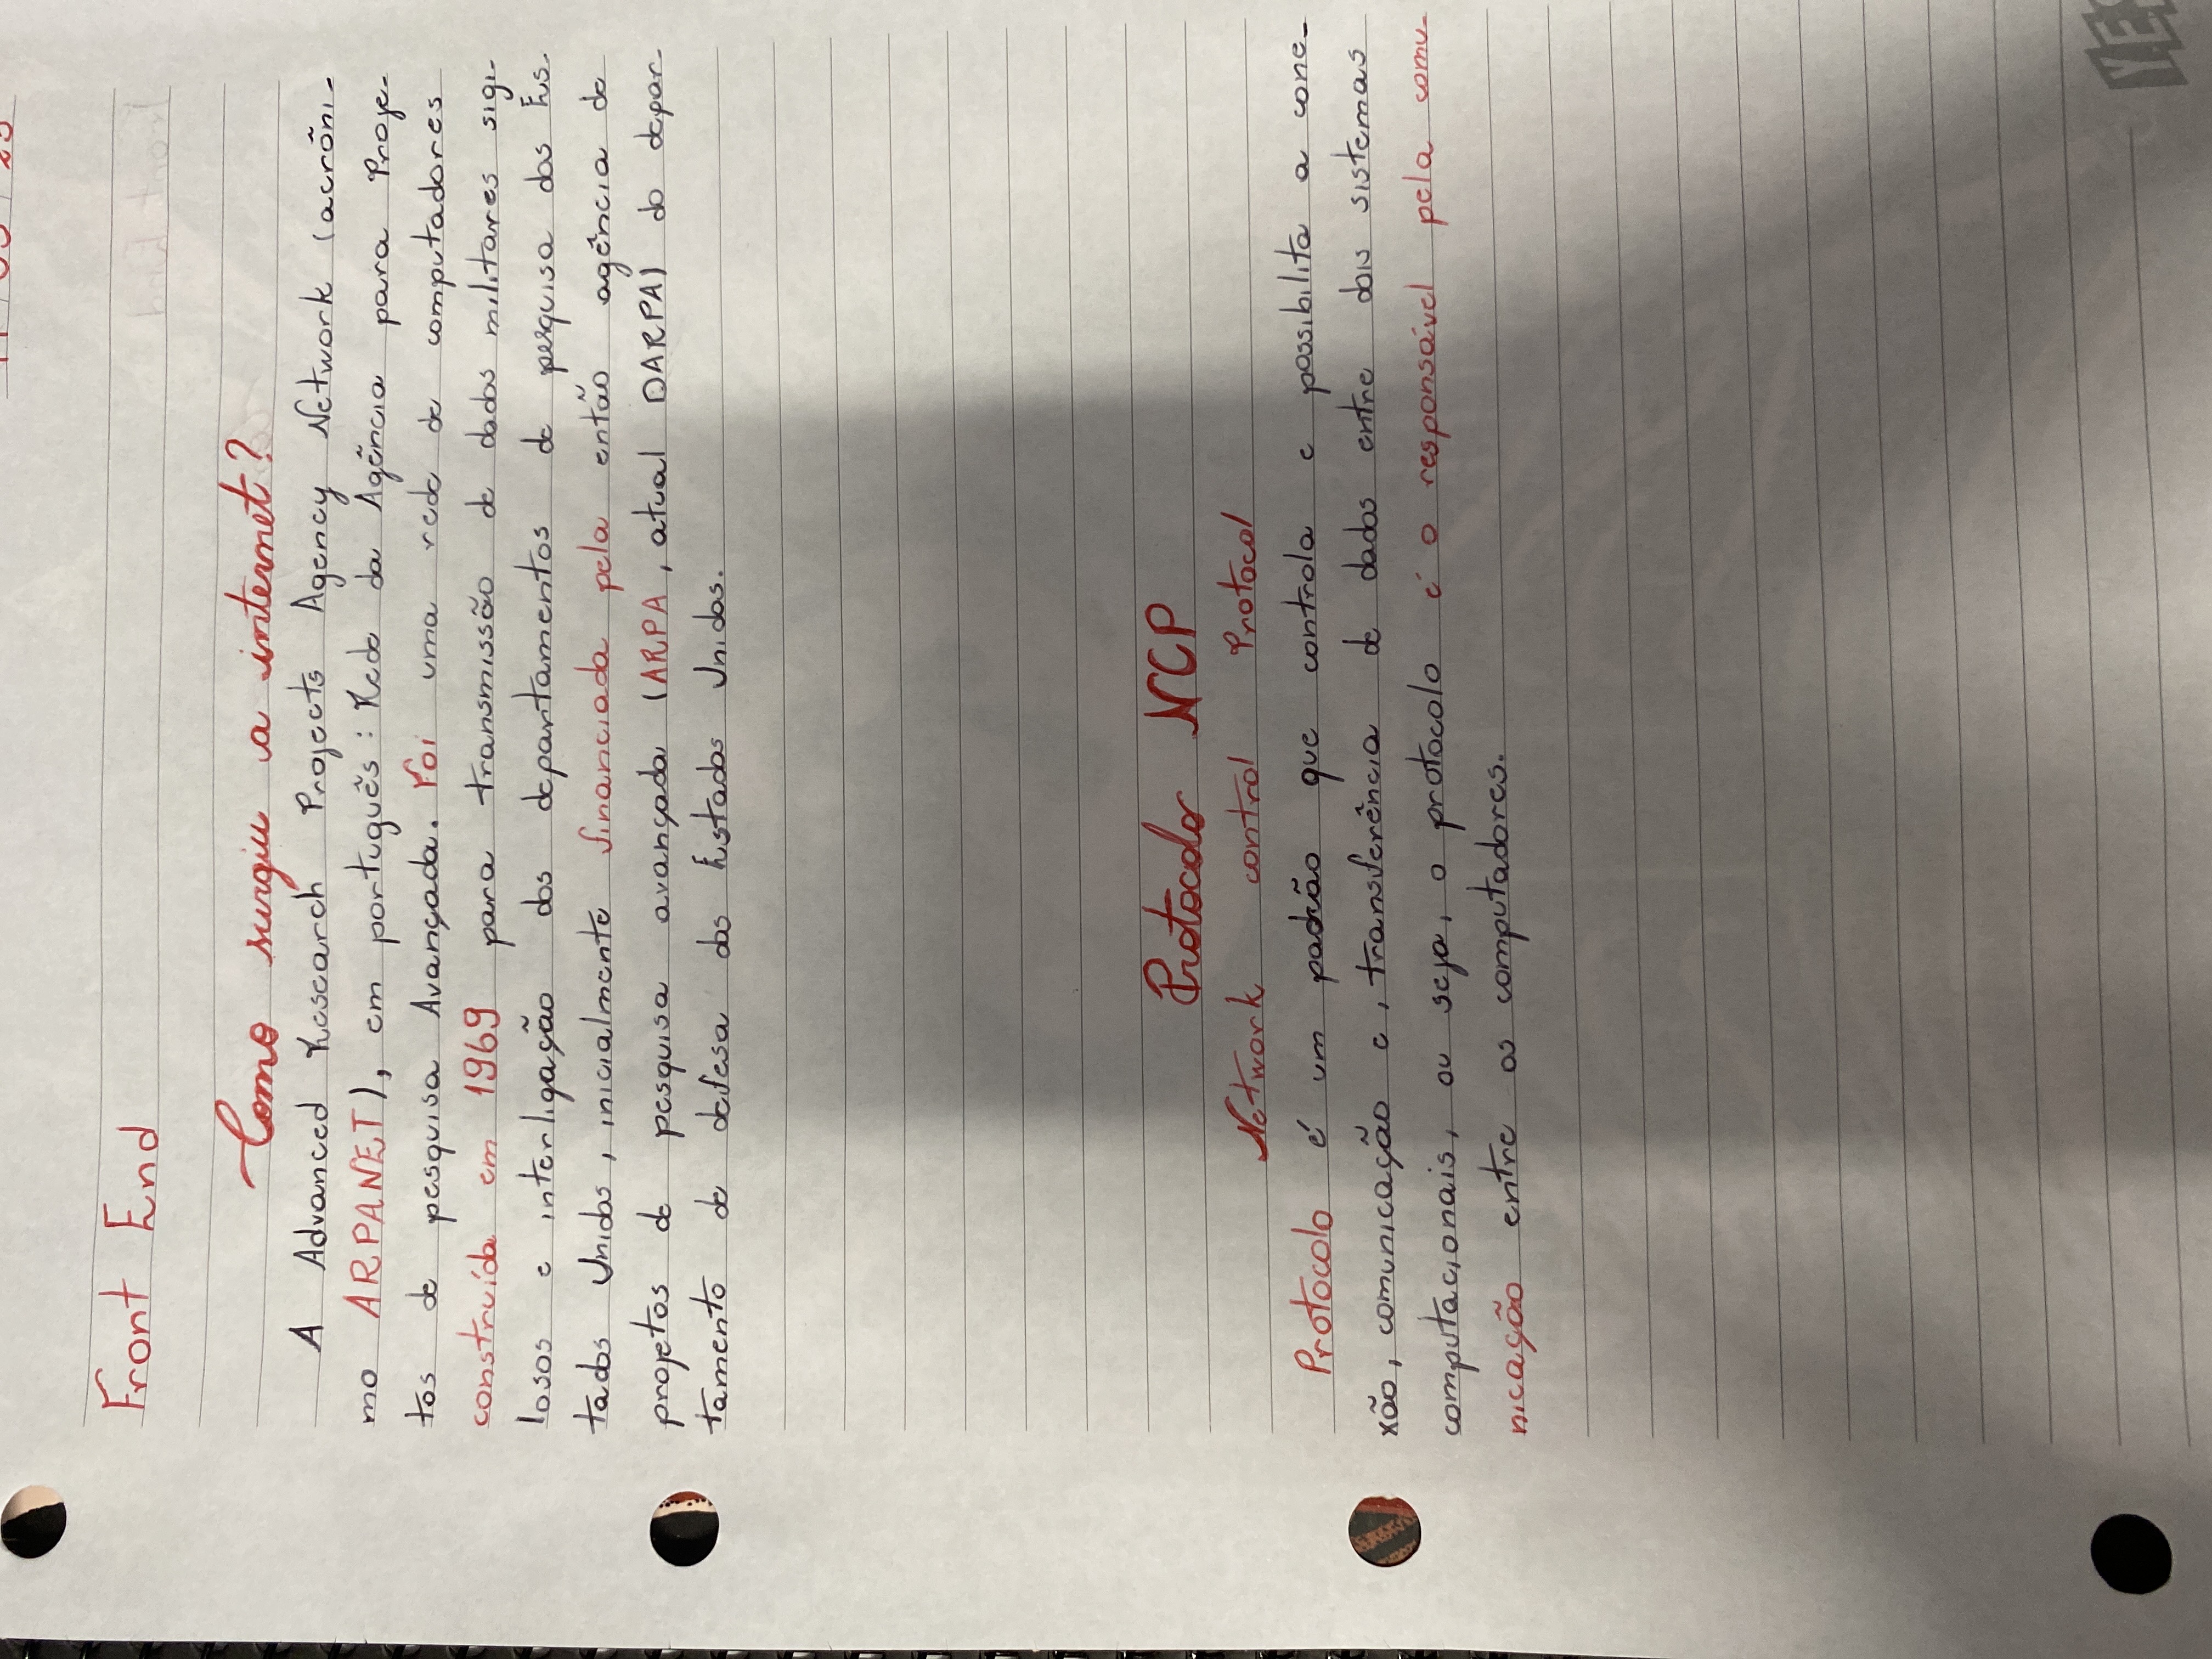 Front End
Como surgiu a internet?
A Advanced Research Projects Agency Network (acrôni-
mo ARPANET), em português: Rede da Agência para Proje-
tos de pesquisa Avançada. Foi uma rede de computadores
construída em 1969 para transmissão de dados militares sigi-
losos e interligação dos departamentos de pesquisa dos Es-
tados Unidos, inicialmente financiada pela então agência de
projetos de pesquisa avançada (ARPA, atual DARPA) do depar-
tamento de defesa dos Estados Unidos.
Protocolo NCP
Network control Protocol
Protocolo é um padrão que controla e possibilita a cone-
xão, comunicação e, transferência de dados entre dois sistemas
computacionais, ou seja, o protocolo é o responsável pela comu-
nicação entre os computadores.